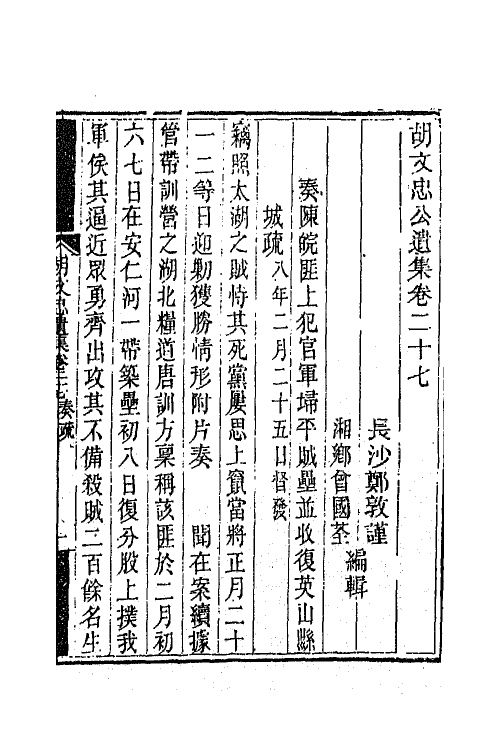 胡文忠公遺集卷二十七
長沙鄭敦謹
湘鄉曾國荃
編輯
奏陳皖匪上犯官軍埽平賊壘並收復英山縣
城疏八年二月二十五日督發
竊照太湖之賊恃其死黨屢思上竄當將正月二十
一二等日迎勦獲勝情形附片奏　聞在案續據
管帶訓營之湖北糧道唐訓方稟稱該匪於二月初
六七日在安仁河一帶築壘初八日復分股上撲我
軍俟其逼近眾勇齊出攻其不備殺賊二百餘名生
胡文忠遺集卷二十七奏疏
一